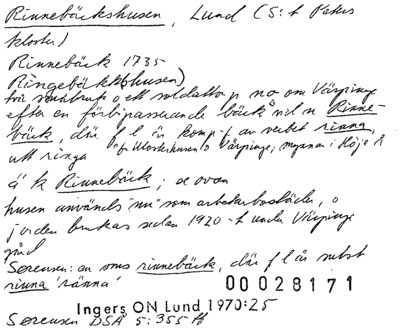 Rinnebäckshusen, Lund (S:t Peters
kloster)
Rinnebäck 1735
Ringebäckshusen)
två småbruk o ett soldattorp no om Värpinge
efter en förbipasserande bäck m n Rinne-
bäck, där f l är komp-f av verbet rinna,
att ringa of Klosterhusen o Värpinge, mynnar i Höje Å
ä k Rinnebäck; se ovan
husen används nu som arbetarbostäder, o
jorden brukas sedan 1920-t under Värpinge
gård
Sörensen: en sms rinnebäck, där f l är subst
rinna 'ränna'
00028171
Ingers ON Lund 1970:25
Sørensen DSÅ 5:355 ff